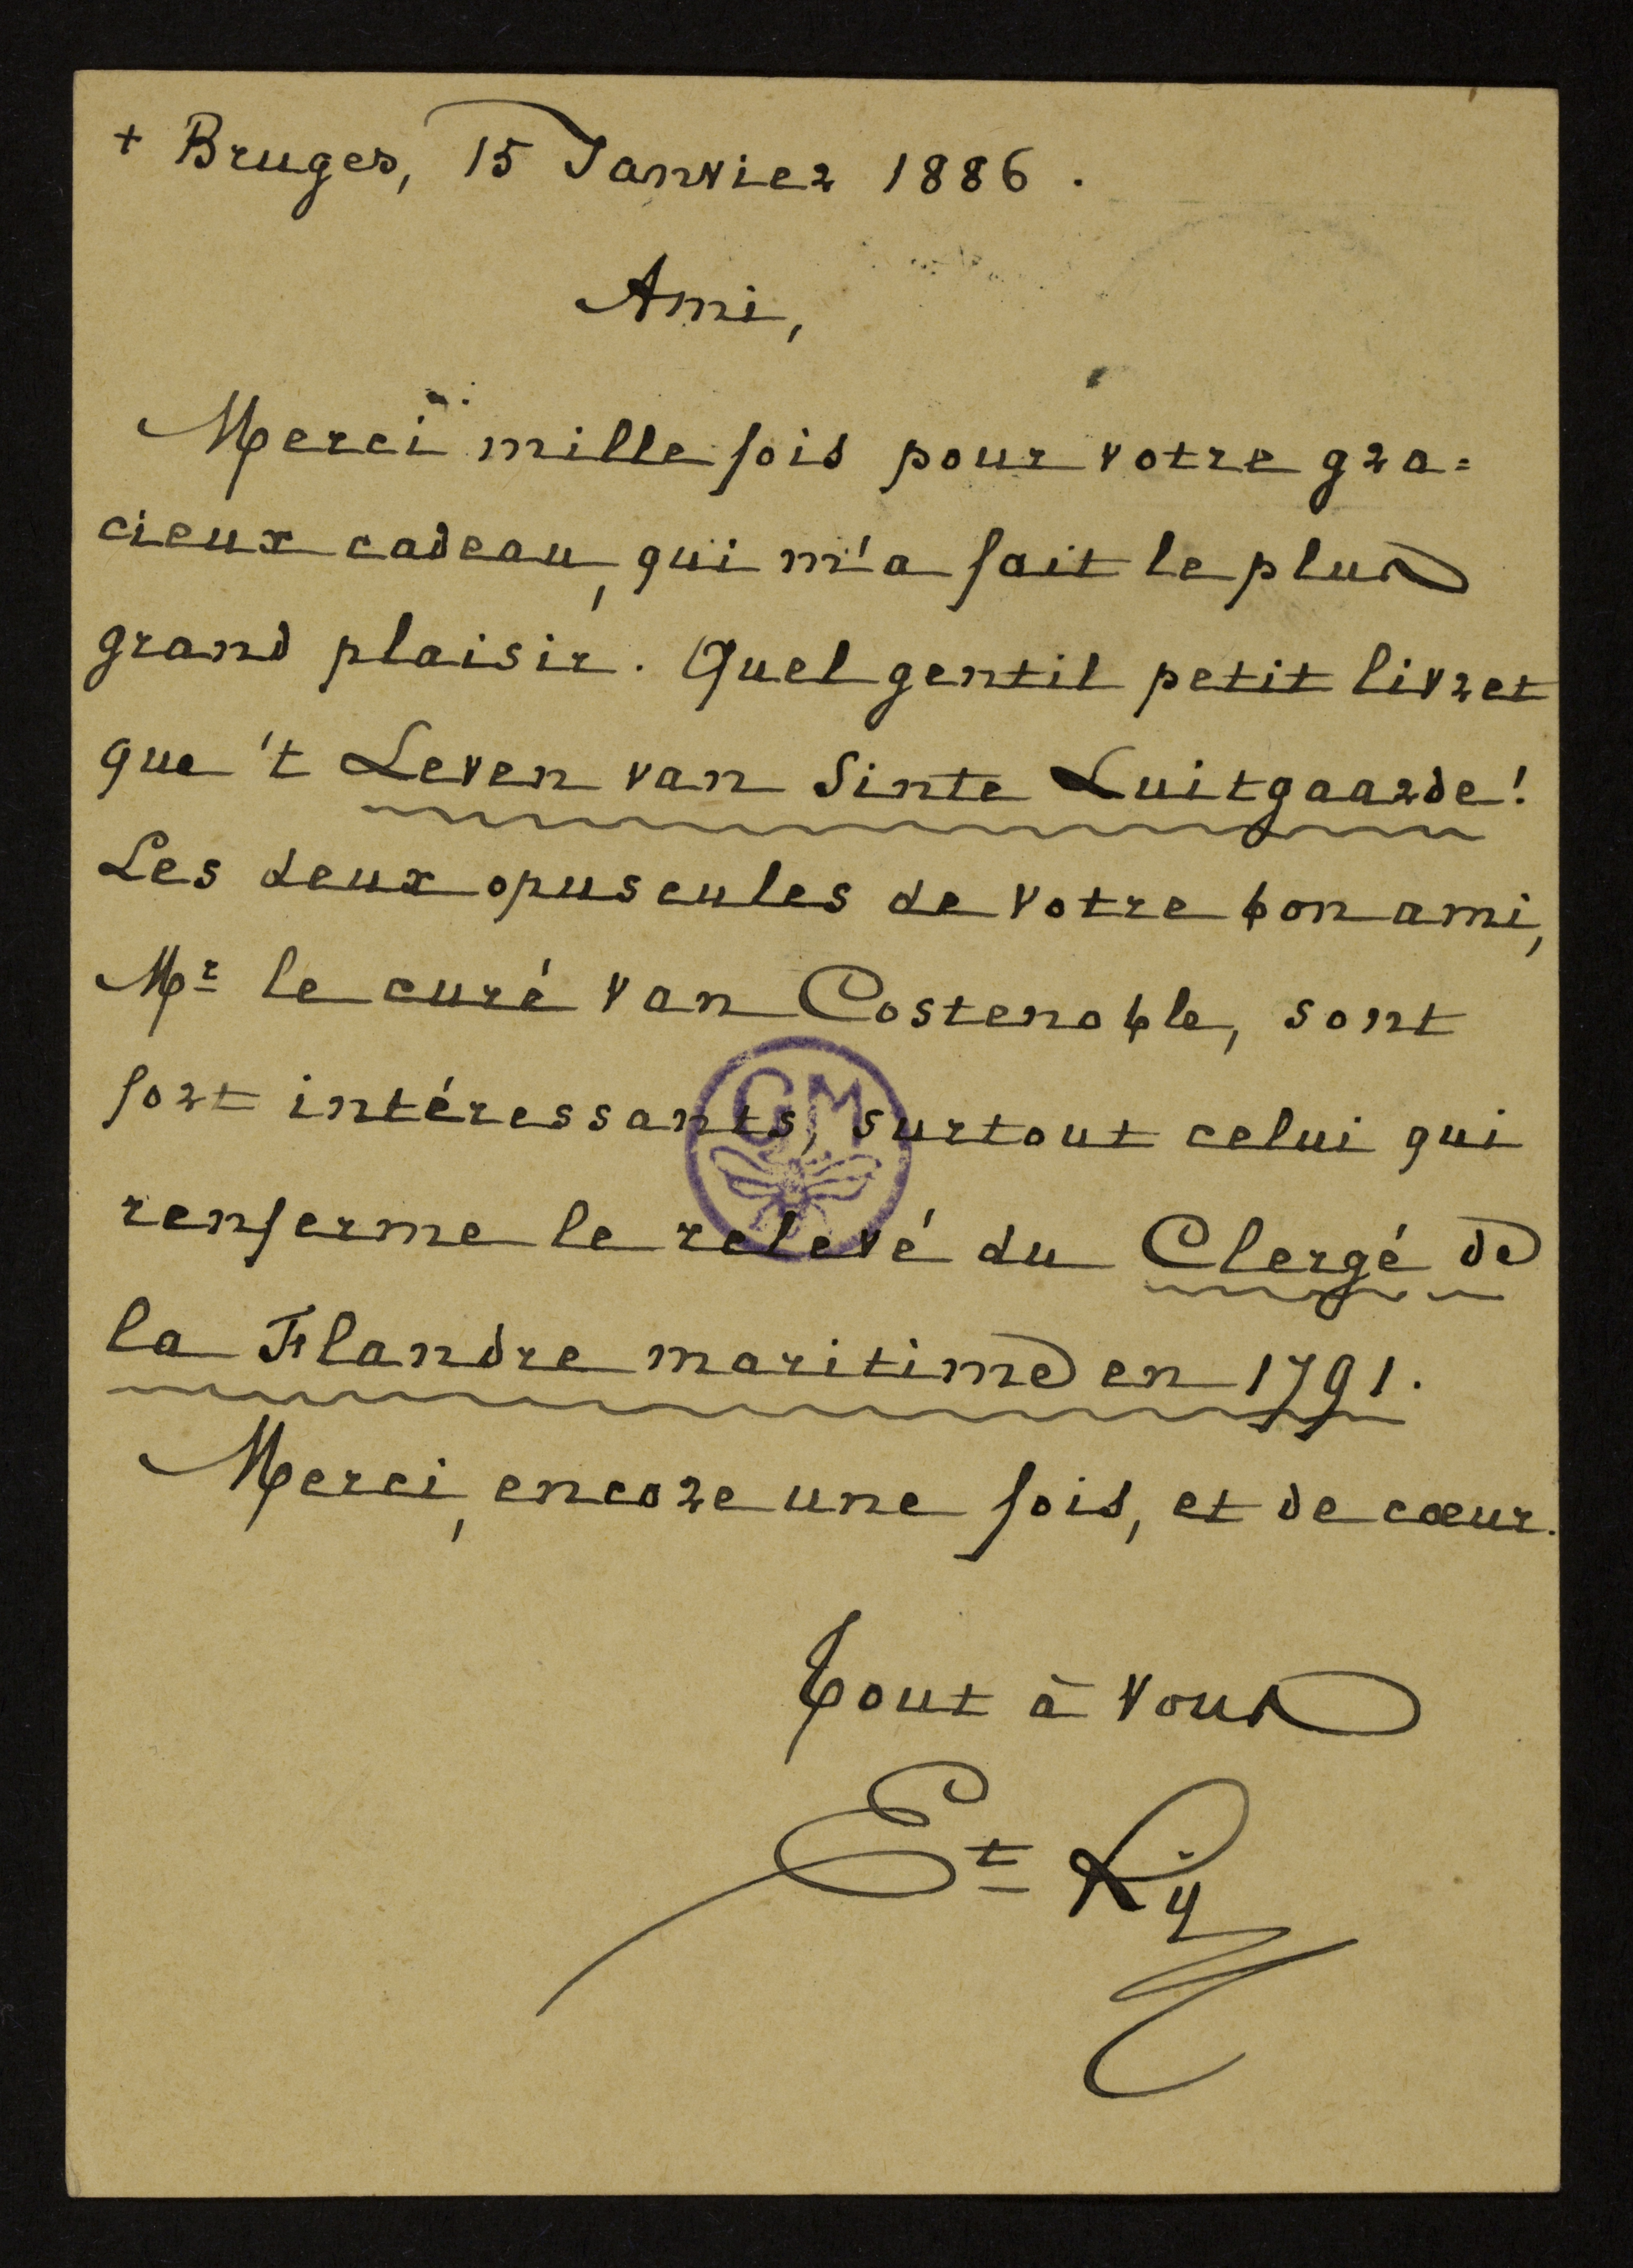 + Bruges, 15 Janvier 1886.
Ami,
Merci mille fois pour votre gra=
cieux cadeau, qui m'a fait le plus
grand plaisir. Quel gentil petit livret
que 't Leven van Sinte Luitgaarde!
Les deux opuscules de votre bon ami,
Mr le curé van Costenoble, sont
fort intéressants, surtout celui qui
GM
renferme le relevé du Clergé de
la Flandre maritime en 1791.
Merci, encore une fois, et de cœur.
Tout à vous
Et